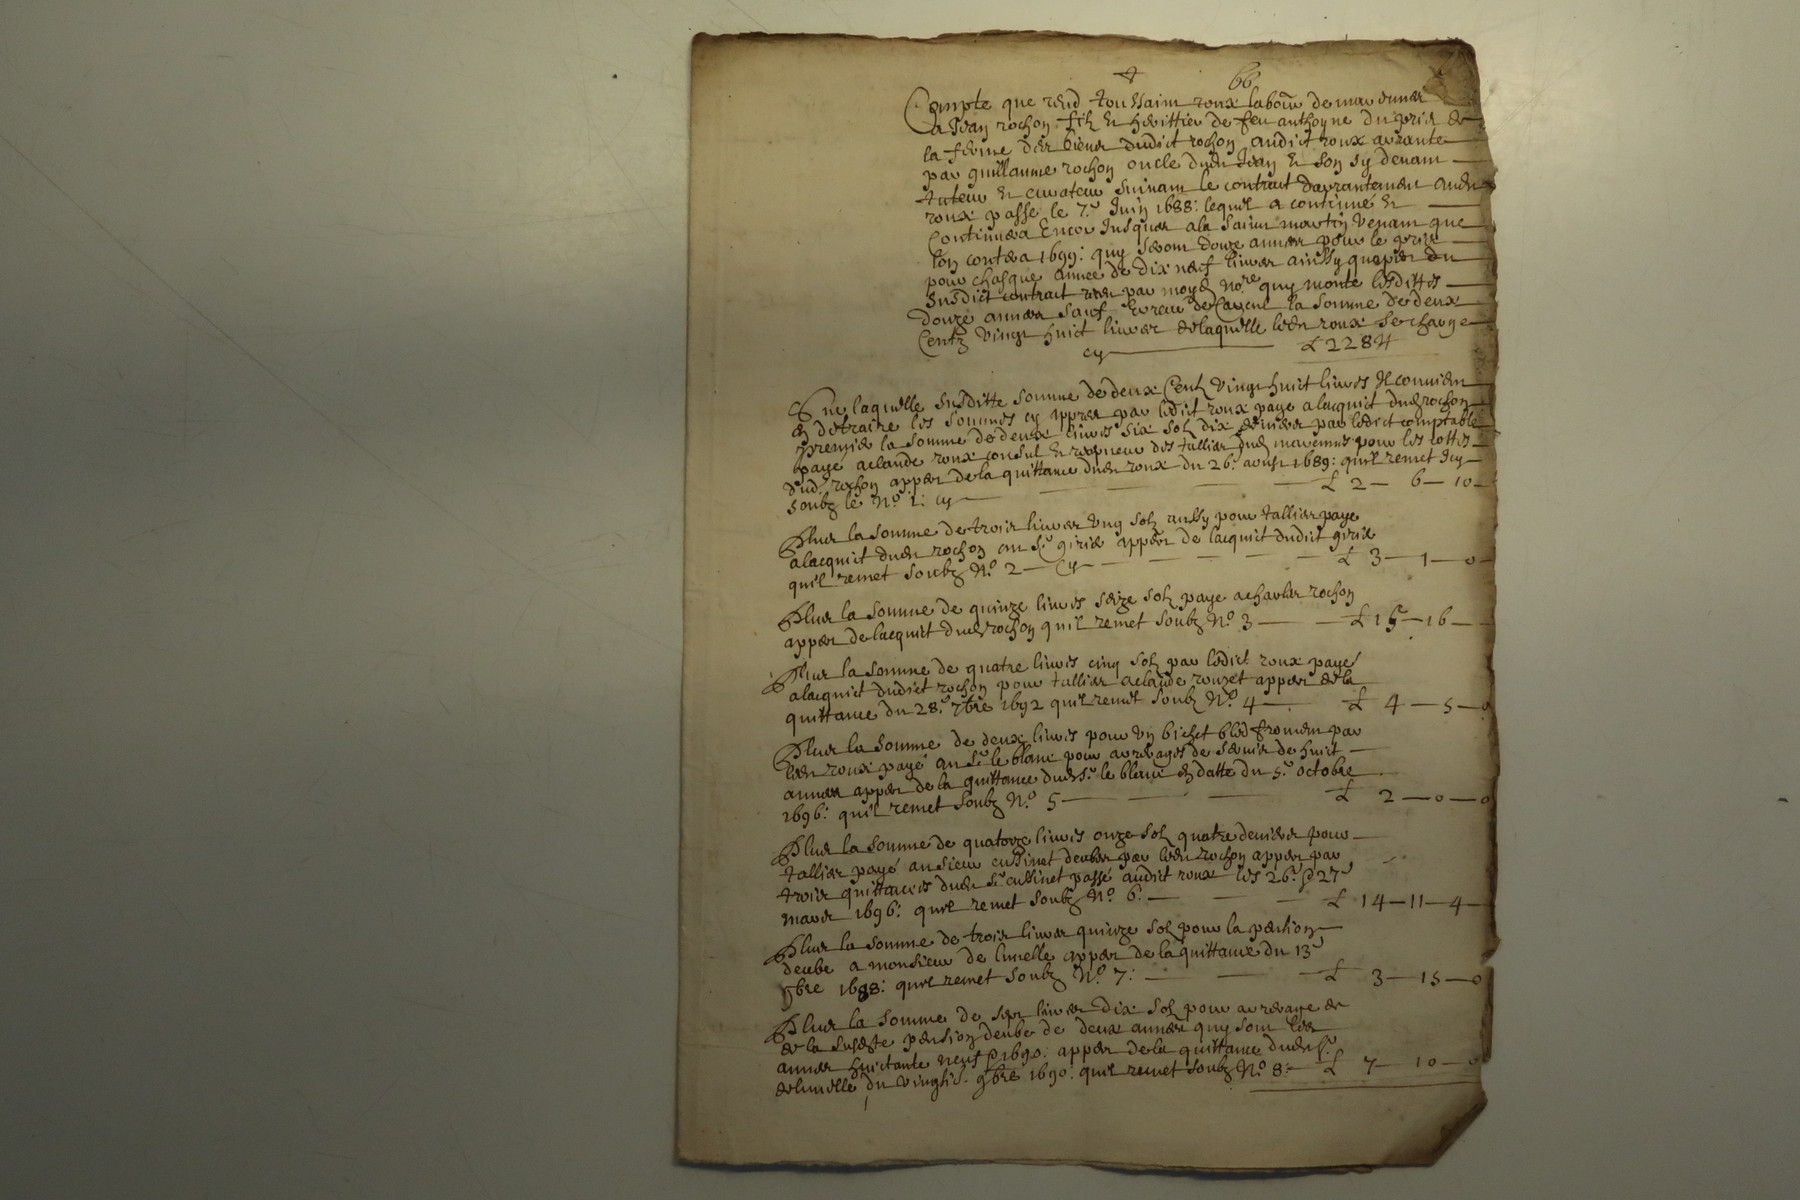 + 66
Compte que rend toussaint roux labour de mavennes
a Jean rochon filz et herittier de feu anthoyne du prix de
la ferme des biens dudict rochon audict roux arrante
par guillaume rochon oncle dudt Jean et son sy devant
tuteur et curateur suivant le contrat darrantement audt
roux passé le 7.e Juin 1688: lequel a continué et
continuera encor jusques a la saint martin venant que
lon contera 1699: quy seront douze années pour le prix
pour chasque année de dix neuf livres ainssy quapert du
susdict contrat par moyd No.re quy monte lesdittes
douze années sauf erreur de Calcul la somme de deux
Centz vingt huict livres de laquelle ledt roux se charge
cy £ 228 #
Sur laquelle susditte somme de deux Centz vingt huict livres Il convient
en detraire les sommes cy appres par ledict roux payé a lacquict dudt rochon
premier la somme de deux livres six solz dix deniers par ledict comptable
payé a claude roux consul et recepveur des tallies dud mavennes pour les cottes
dud. rochon apper de la quittance dudt roux du 26.e aoust 1689: quil remet Icy
soubz le No. 1: cy £ 2 — 6 — 10
Plus la somme de trois livres ung solz aussy pour tallies paye
a lacquict dudt rochon au Sr girie apper de lacquict dudict girie
quil remet soubz No. 2 — Cy — £ 3 — 1 — 0
Plus la somme de quinze livres seize solz paye a charles rochon
apper de lacquict dudt rochon quil remet soubz No. 3 — £ 15 — 16 —
Plus la somme de quatre livres cinq solz par ledict roux payé
a lacquict dudict rochon pour tallies a claude rouzet apper de la
quittance du 28.e 7bre 1692 quil remet soubz No. 4 — £ 4 — 5 — 0
Plus la somme de deux livres pour un bichet bled froment par
ledt roux payé au Sr le blanc pour arrerages de servis de huict
années apper de la quittance dudt Sr. le blanc en datte du 5.e octobre
1696: quil remet soubz No. 5 — £ 2 — 0 — 0
Plus la somme de quatorze livres onze solz quatre deniers pour
tallies payé au sieur cussinet deubes par ledt rochon apper par
trois quittances dudt Sr cussinet passé audict roux les 26.e & 27e
mars 1696: quil remet soubz No. 6: — £ 14 — 11 — 4
Plus la somme de trois livres quinze solz pour la pention
deube a monsieur de limelle apper de la quittance du 13e
9bre 1688: quil remet soubz No. 7: — £ 3 — 15 — 0
Plus la somme de sept livres dix solz pour arrerage de
de la suste pention deube de deux années quy sont les
années huictante neuf & 1690: apper de la quittance dudt Sr
de limelle du 9bre 1690: quil remet soubz No. 8: £ 7 — 10 — 0